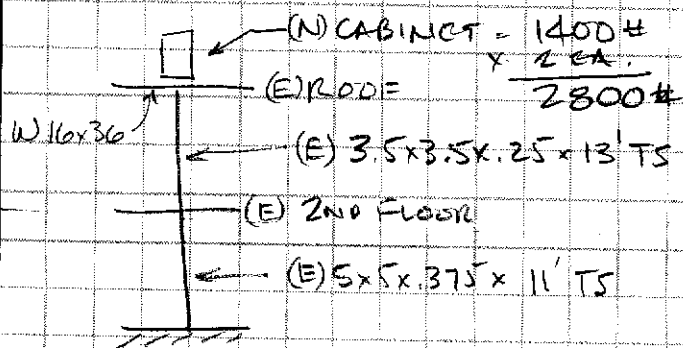 (N) CABINET - 1400#
x 2 EA.
(E) ROOF
2800#
W16x36
(E) 3.5x3.5x.25x13' TS
(E) 2ND FLOOR
(E) 5x5x.375x 11' TS